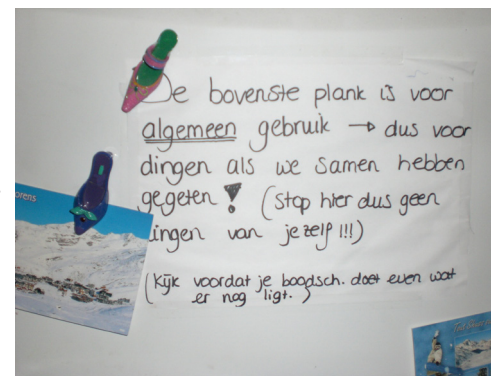 De bovenste plank is voor
algemeen gebruik → dus voor
dingen als we samen hebben
gegeten! (Stop hier dus geen
dingen van jezelf!!!)
(Kijk voordat je boodsch. doet even wat
er nog ligt.)
orens